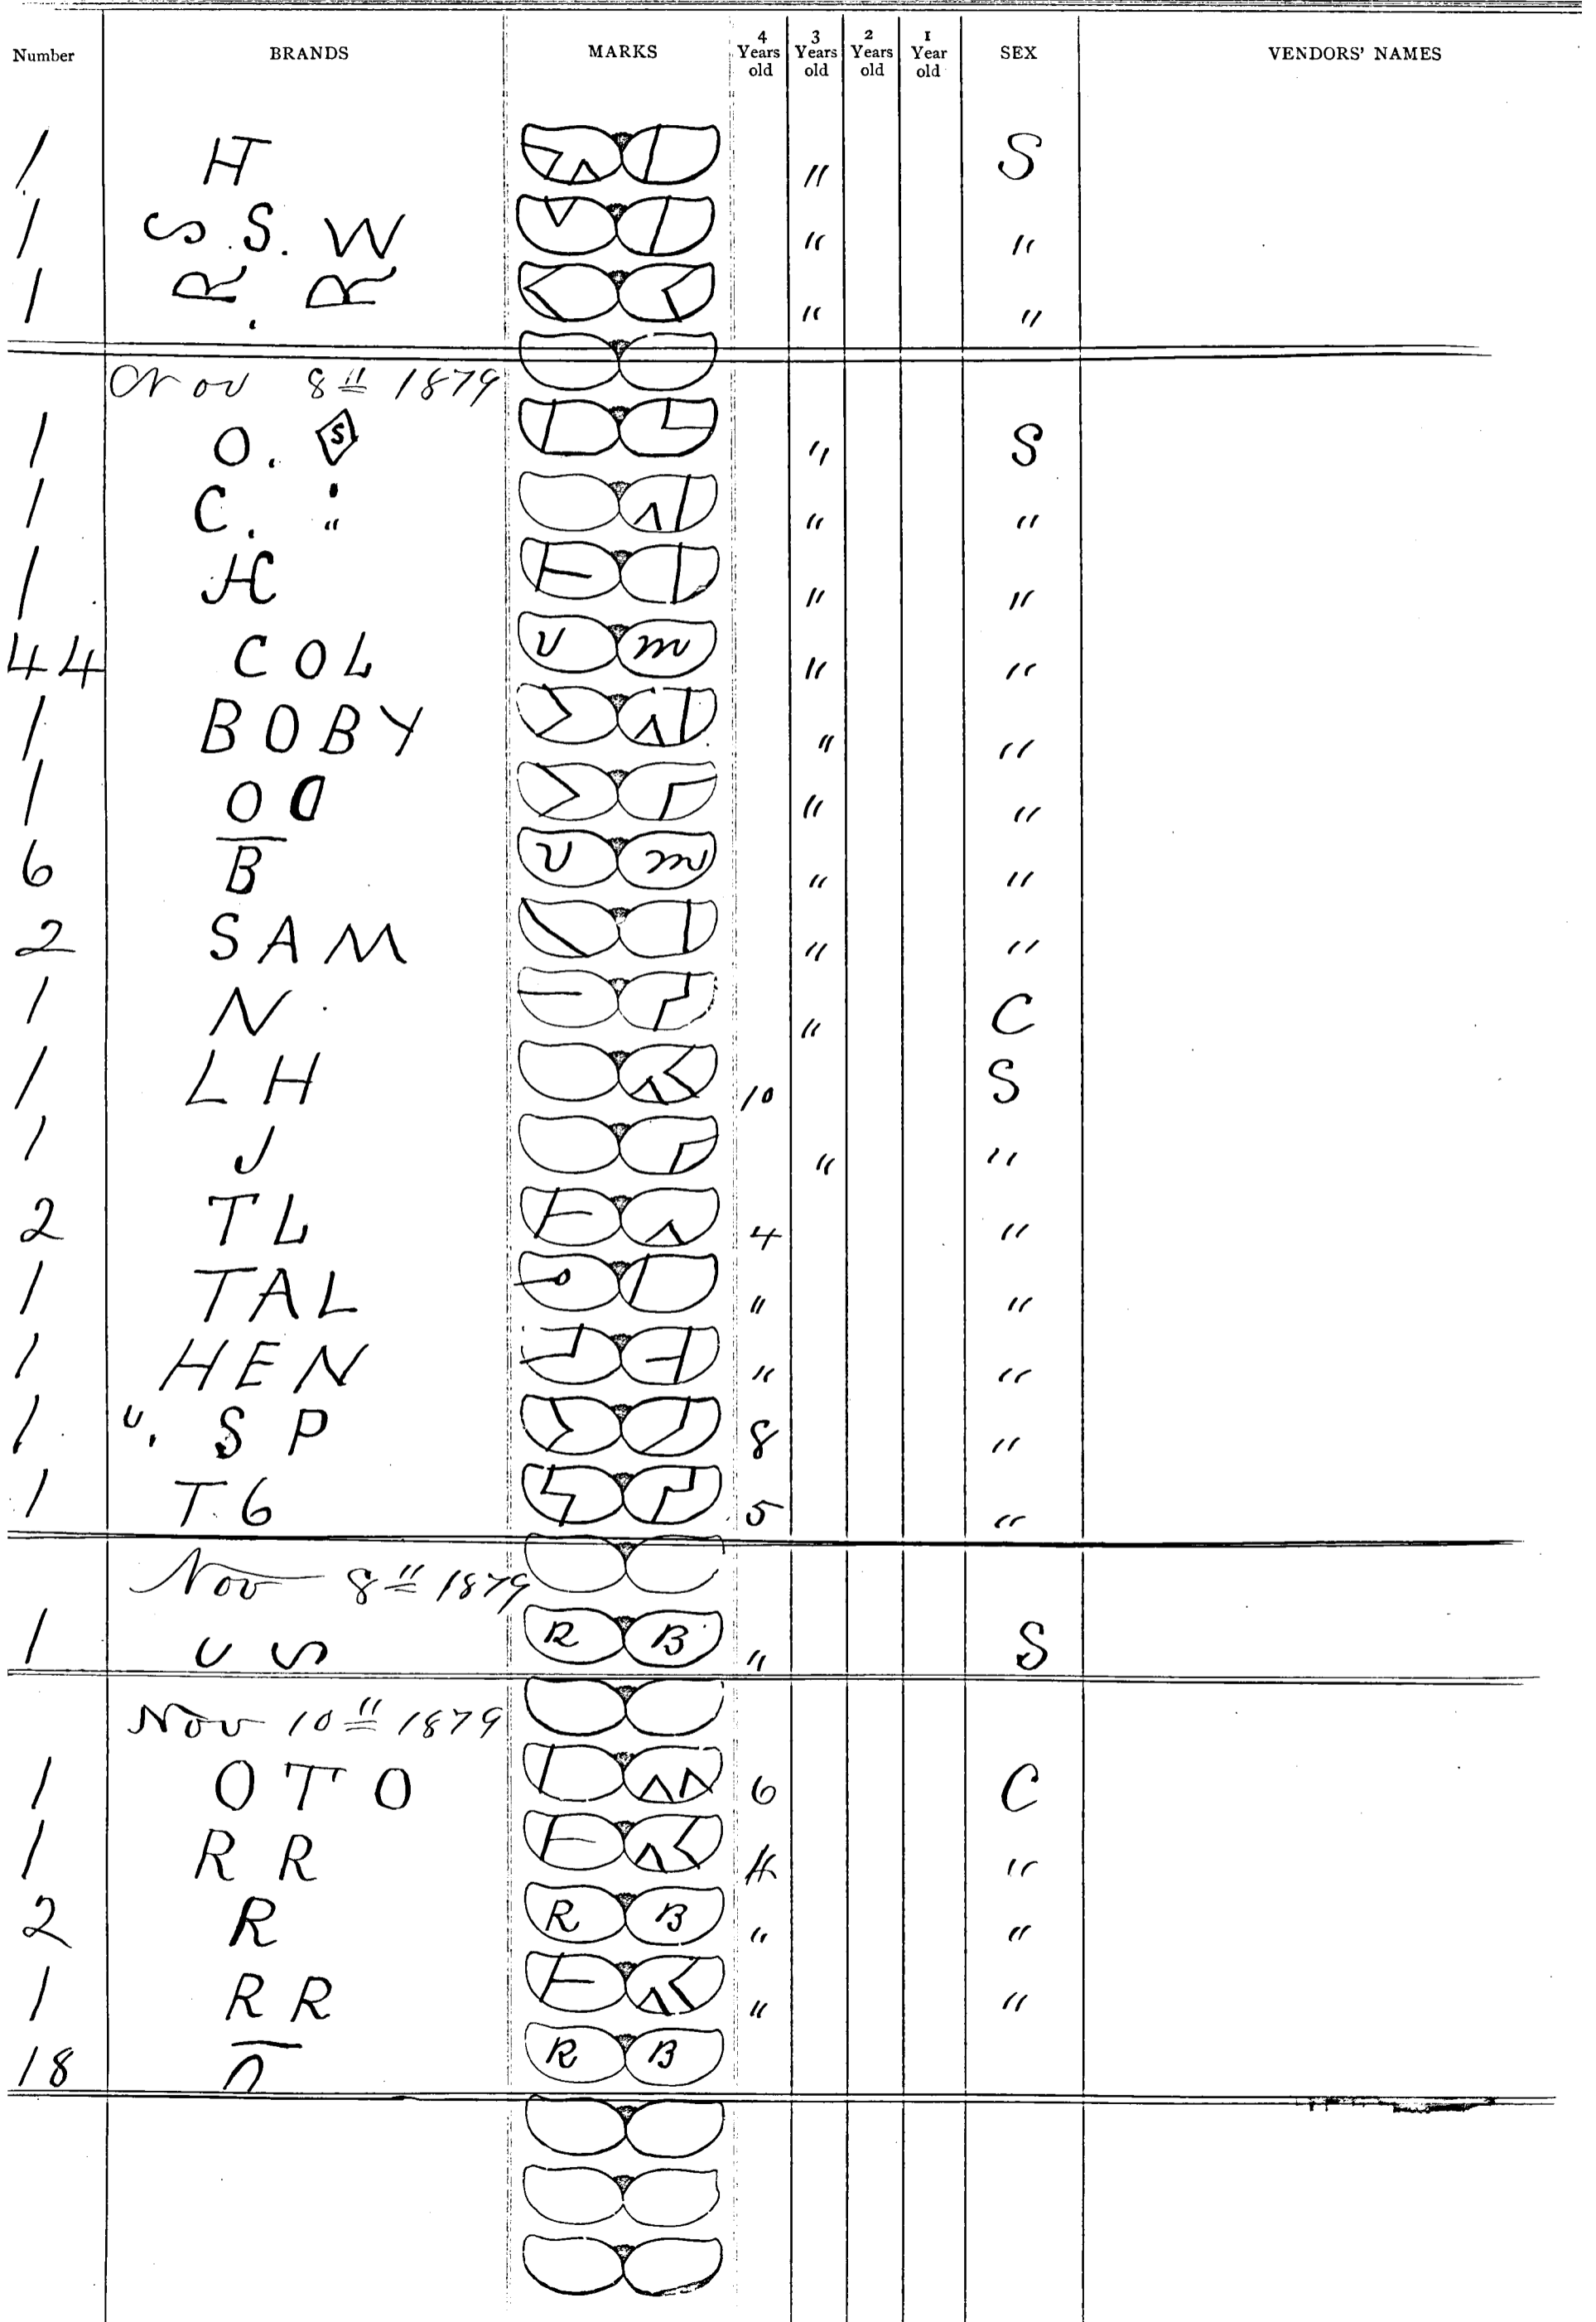 Number BRANDS MARKS 4 Years old 3 Years old 2 Years old 1 Year old SEX VENDORS' NAMES
1 H " S
1 S.S. W " "
1 R. R " "
Nov 8" 1879
1 O. S " S
1 C. " " "
1 HC " "
44 COL U m " "
1 BOBY " "
1 O D " "
6 B U m " "
2 SAM " "
1 N " C
1 LH 10 S
1 J " "
2 TL 4 "
1 TAL " "
1 HEN " "
1 ". S P 8 "
1 T.6 5 "
Nov 8" 1879
1 U S R B " S
Nov 10" 1879
1 OTO 6 C
1 R R 4 "
2 R R B " "
1 R R " "
18 R B